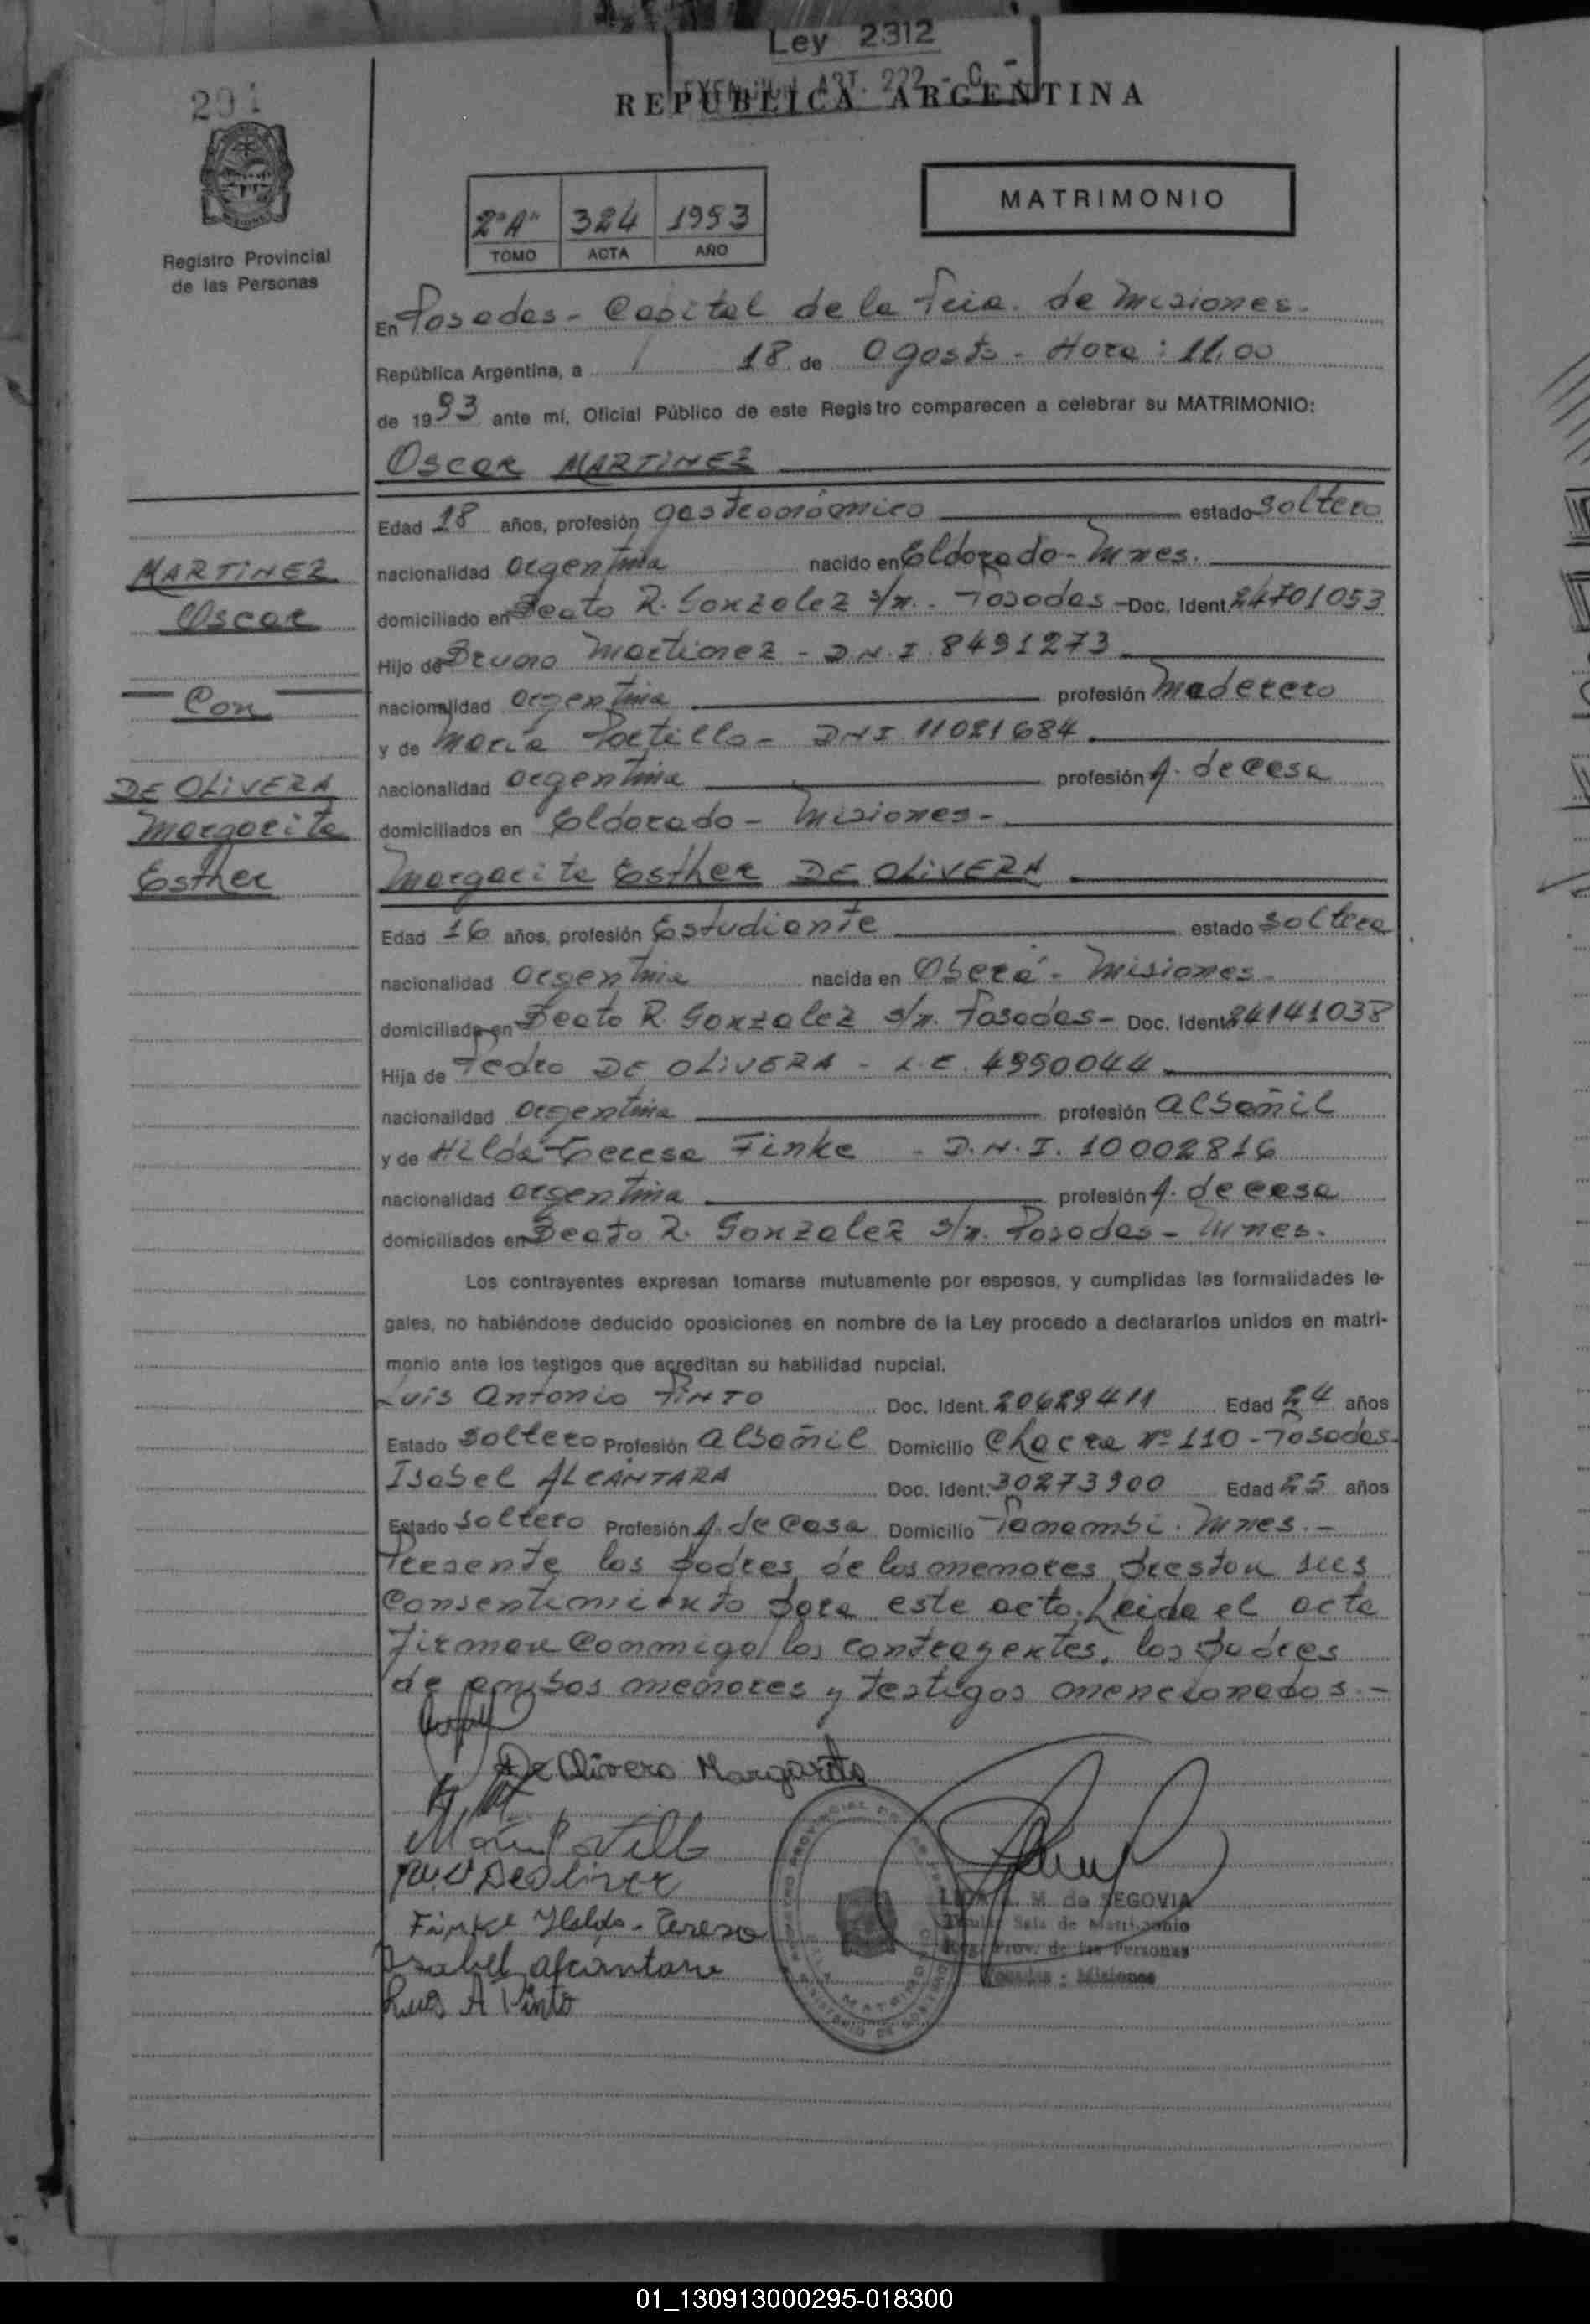 Ley 2312
ART. 222 - C -
REPUBLICA ARGENTINA
Registro Provincial
de las Personas
2º"A" 324 1993
TOMO ACTA AÑO
MATRIMONIO
En Posadas - Capital de la Pcia. de Misiones.
República Argentina, a 18 de Agosto - Hora : 11,00
de 1993 ante mí, Oficial Público de este Registro comparecen a celebrar su MATRIMONIO:
Oscar MARTINEZ
Edad 18 años, profesión gastronómico estado soltero
MARTINEZ
Oscar
Con
DE OLIVERA
Margarita
Esther
nacionalidad argentina nacido en Eldorado - Mnes.
domiciliado en Beato R. Gonzalez s/n. - Posadas - Doc. Ident. 24701053
Hijo de Bruno Martinez - D.N.I. 8491273
nacionalidad argentina profesión Maderero
y de María Portillo - DNI 11021684
nacionalidad argentina profesión A. de casa
domiciliados en Eldorado - Misiones -
Margarita Esther DE OLIVERA
Edad 16 años, profesión Estudiante estado soltera
nacionalidad argentina nacida en Oberá - Misiones -
domiciliada en Beato R. Gonzalez s/n. Posadas - Doc. Ident. 24141038
Hija de Pedro DE OLIVERA - L.E. 4990044
nacionalidad argentina profesión albañil
y de Hilda Teresa Finke - D.N.I. 10002816
nacionalidad argentina profesión A. de casa
domiciliados en Beato R. Gonzalez s/n. Posadas - Mnes.
Los contrayentes expresan tomarse mutuamente por esposos, y cumplidas las formalidades le-
gales, no habiéndose deducido oposiciones en nombre de la Ley procedo a declararlos unidos en matri-
monio ante los testigos que acreditan su habilidad nupcial.
Luis Antonio PINTO Doc. Ident. 20629411 Edad 24 años
Estado soltero Profesión albañil Domicilio Chacra Nº 110 - Posadas -
Isabel ALCANTARA Doc. Ident. 30273900 Edad 25 años
Estado soltero Profesión A. de Casa Domicilio Panambi. Mnes. -
Presente los padres de los menores prestan sus
Consentimiento para este acto. Leida el acta
firman conmigo los contrayentes, los padres
de ambos menores y testigos mencionados. -
De Olivera Margarita
Maria Portillo
Finke Hilda - Teresa
Isabel alcantara
Luis A Pinto
M. de SEGOVIA
Titular Sala de Matrimonio
Reg. Prov. de las Personas
Posadas : Misiones
01_130913000295-018300